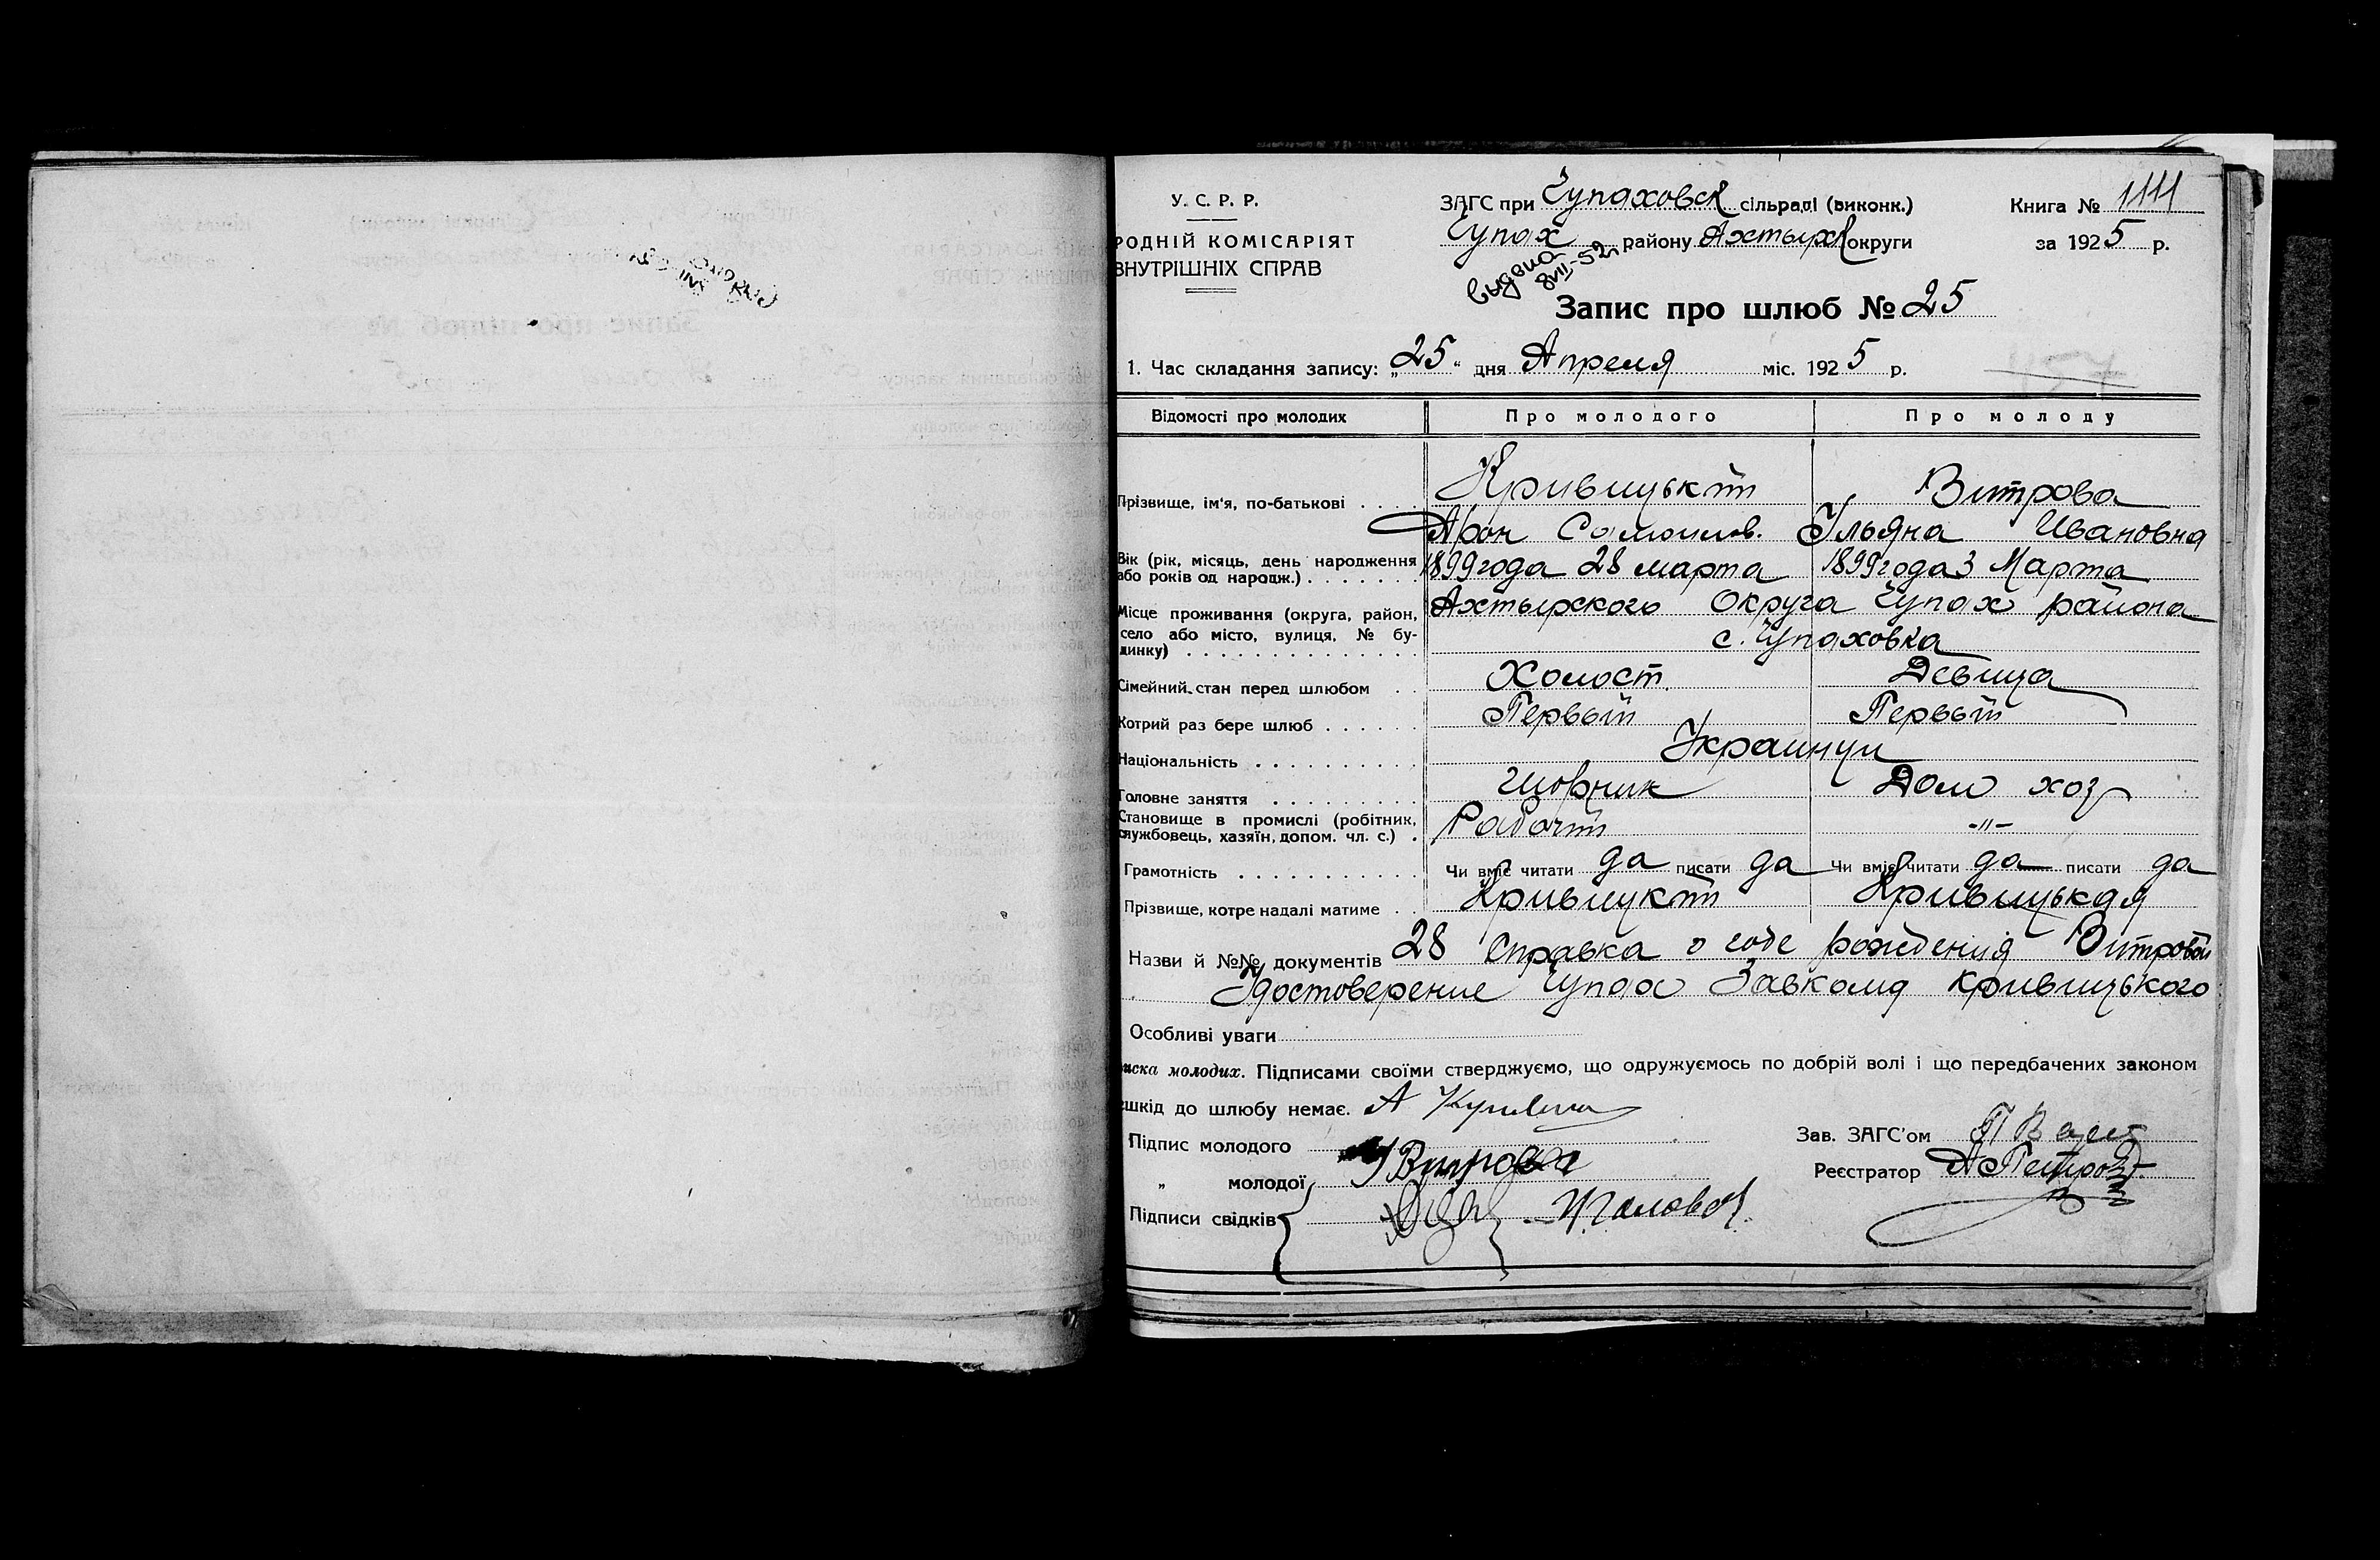 У. С. Р. Р.
РОДНІЙ КОМІСАРІЯТ
ВНУТРІШНІХ СПРАВ
ЗАГС при Чупаховск сільраді (виконк.)
Чупах району Ахтырск округи
выдена
8VII-52
Книга № 1111
за 1925 р.
Запис про шлюб № 25
1. Час складання запису: „25“ дня Апреля міс. 1925 р.
Відомості про молодих Про молодого Про молоду
Прізвище, ім'я, по-батькові . . . Кривицький Витрова
Арон Самоилов. Ульяна Ивановна
Вік (рік, місяць, день народження
або років од народж.) . . . . . . . 1899 года 28 марта 1899 года 3 Марта
Місце проживання (округа, район,
село або місто, вулиця, № бу-
динку) . . . . . . . . . . . . . .
Ахтырского Округа Чупах района
с. Чупаховка
Сімейний стан перед шлюбом . . Холост. Девица
Котрий раз бере шлюб . . . . . . Первый Первый
Національність . . . . . . . . . . Украинци
Головне заняття . . . . . . . . . Шорник Дом хоз
Становище в промислі (робітник,
службовець, хазяїн, допом. чл. с.) . Рабочий -"-
Грамотність . . . . . . . . . . . Чи вміє читати да писати да Чи вміє читати да писати да
Прізвище, котре надалі матиме . . Кривицкий Кривицькая
Назви й №№ документів 28 Справка о годе рождения Витровой
Удостоверение Чупах Завкома Кривицького
Особливі уваги
иска молодих. Підписами своїми стверджуємо, що одружуємось по добрій волі і що передбачених законом
ешкід до шлюбу немає.
Підпис молодого
„ молодої У Витрова
Підписи свідків
Зав. ЗАГС'ом
Реєстратор